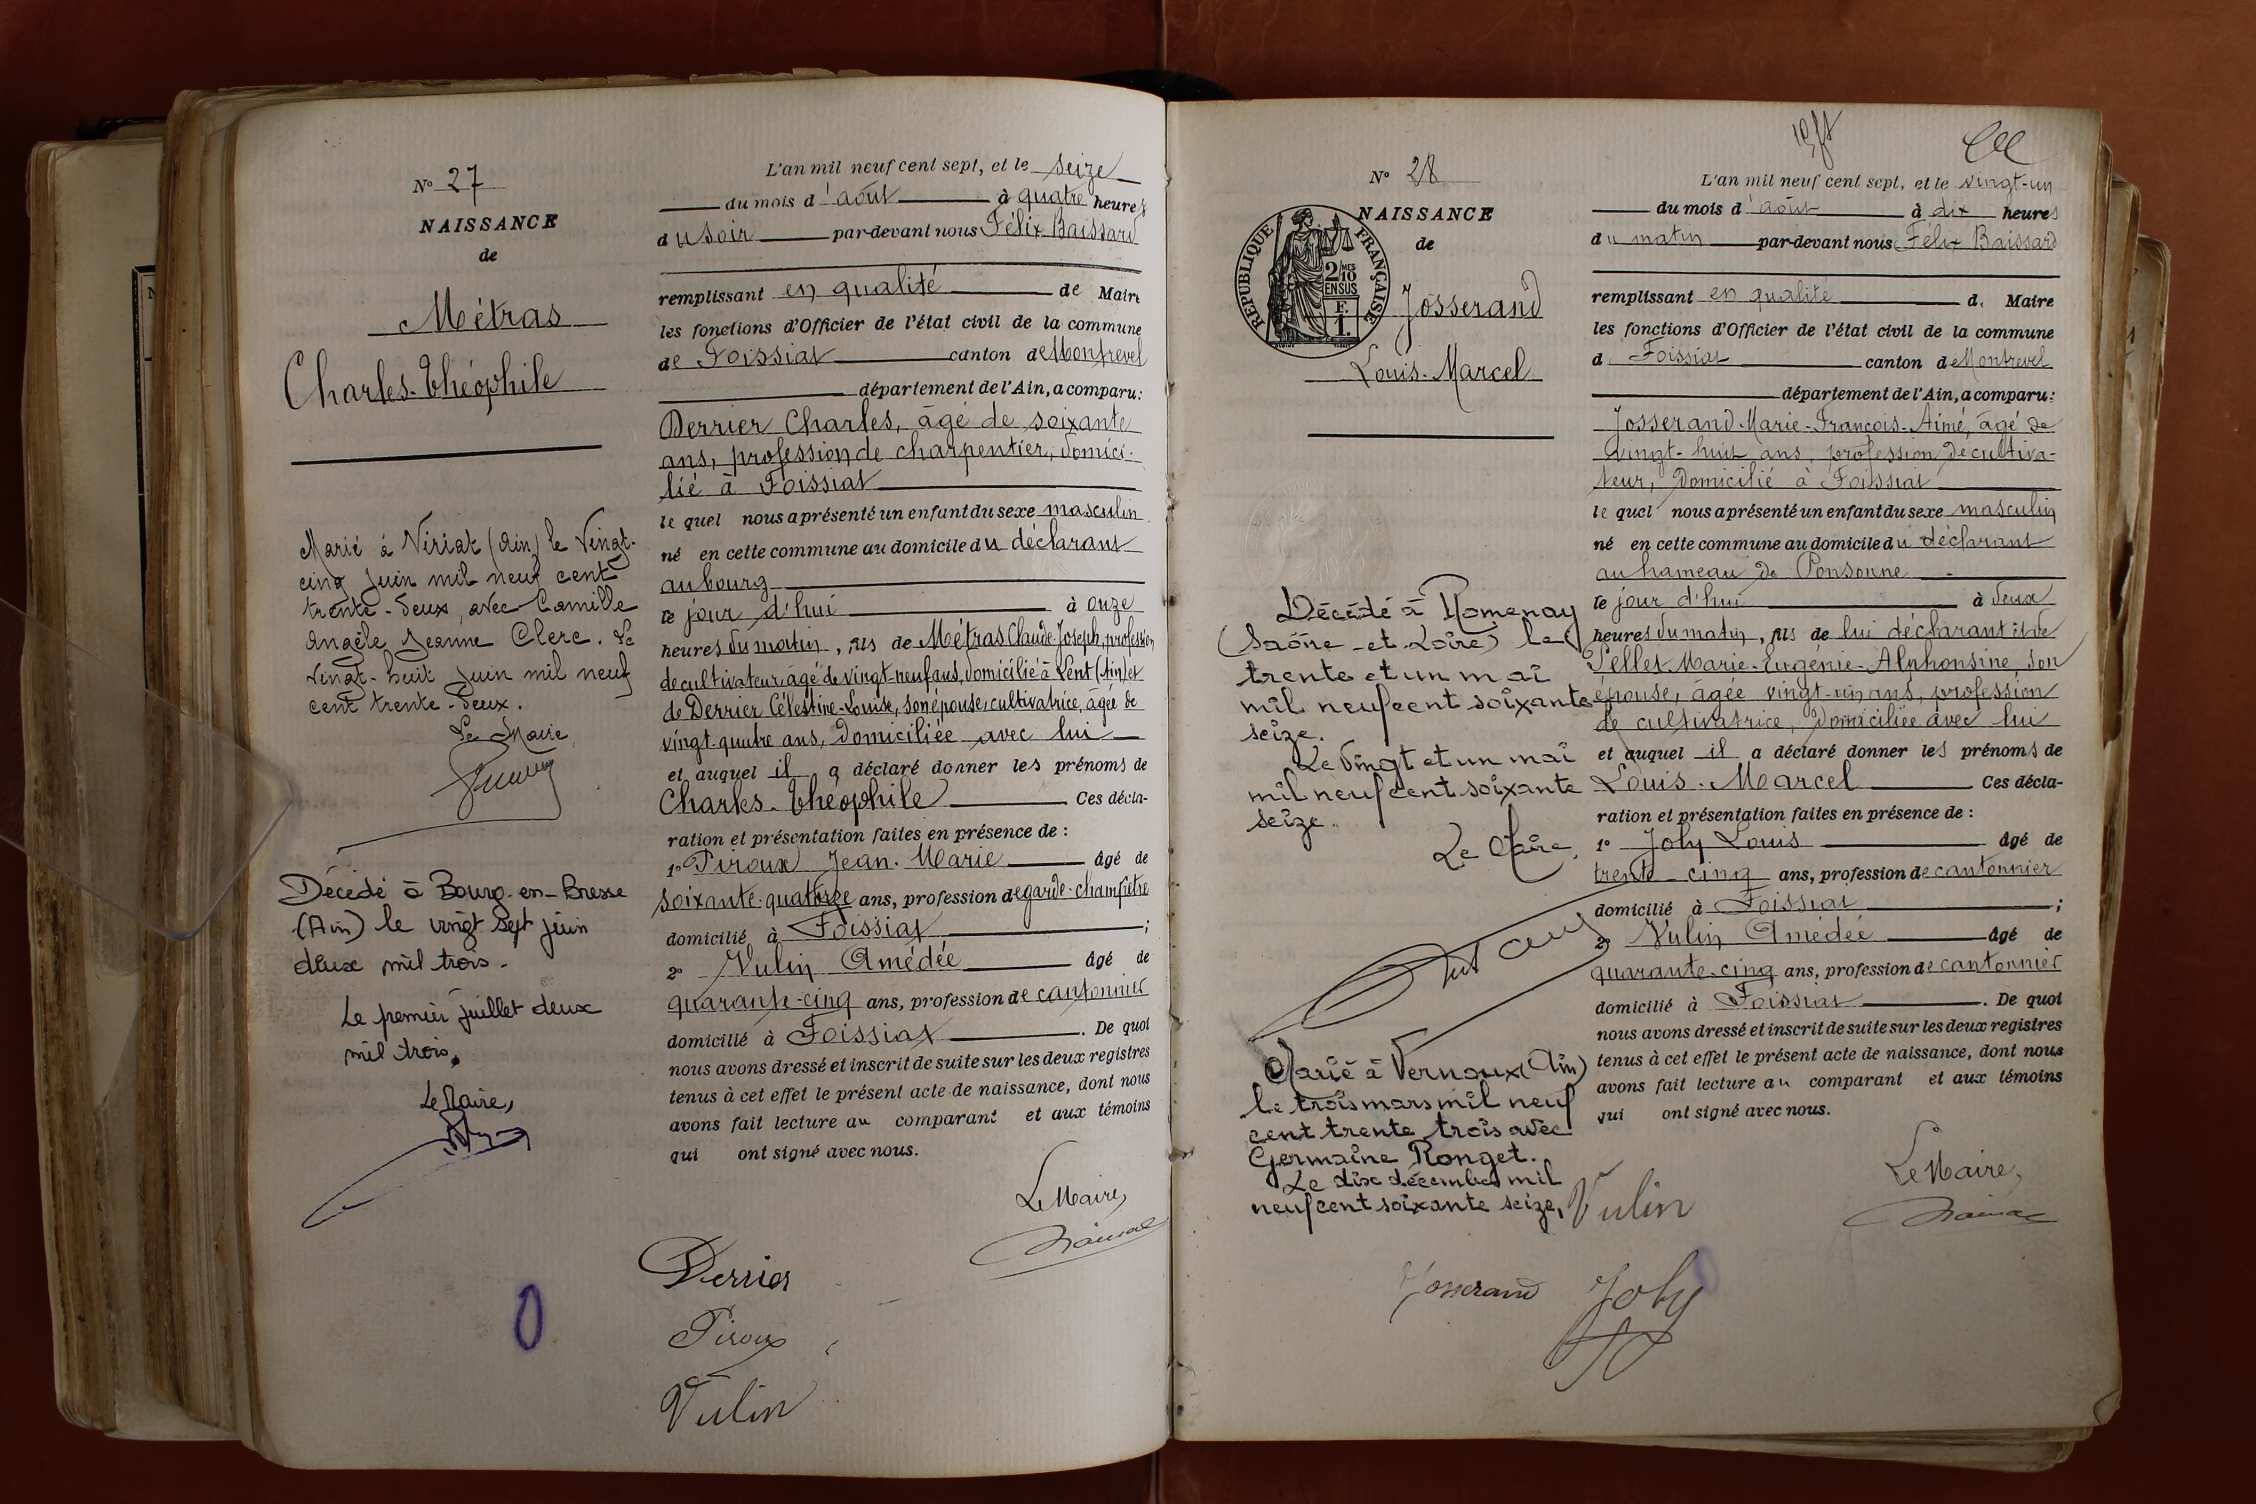 N° 27
NAISSANCE
de
Métras
Charles-Théophile
Marié à Viriat (Ain) le Vingt-
cinq Juin mil neuf cent
trente-deux, avec Camille
Angèle Jeanne Clerc. Le
vingt-huit Juin mil neuf
cent trente-deux.
Le Maire,
Décédé à Bourg-en-Bresse
(Ain) le vingt sept juin
deux mil trois.
Le premier juillet deux
mil trois.
Le Maire,
L'an mil neuf cent sept, et le seize
du mois d'août à quatre heures
du soir par-devant nous Félix Baissard
remplissant en qualité de Maire
les fonctions d'Officier de l'état civil de la commune
de Foissiat canton de Montrevel
département de l'Ain, a comparu:
Derrier Charles, âgé de soixante
ans, profession de charpentier, domici-
lié à Foissiat
le quel nous a présenté un enfant du sexe masculin
né en cette commune au domicile du déclarant
au bourg
le jour d'hui à onze
heures du matin, fils de Métras Claude-Joseph, profession
de cultivateur, âgé de vingt-neuf ans, domicilié à Lent (Ain) et
de Derrier Célestine-Louise, son épouse, cultivatrice, âgée de
vingt-quatre ans, domiciliée avec lui
et auquel il a déclaré donner les prénoms de
Charles-Théophile Ces décla-
ration et présentation faites en présence de :
1° Piroux Jean-Marie âgé de
soixante-quatorze ans, profession de garde-champêtre
domicilié à Foissiat ;
2° Vulin Amédée âgé de
quarante-cinq ans, profession de cantonnier
domicilié à Foissiat . De quoi
nous avons dressé et inscrit de suite sur les deux registres
tenus à cet effet le présent acte de naissance, dont nous
avons fait lecture au comparant et aux témoins
qui ont signé avec nous.
Le Maire,
Derrier
Piroux
Vulin
N° 28
NAISSANCE
de
RÉPUBLIQUE FRANÇAISE
2/10 MES
EN SUS
F.
1.
Josserand
Louis-Marcel
Décédé à Romenay
(Saône-et-Loire) le
trente et un mai
mil neuf cent soixante
seize.
Le Vingt et un mai
mil neuf cent soixante
seize.
Le Maire,
Marié à Vernoux (Ain)
le trois mars mil neuf
cent trente trois avec
Germaine Ronget.
Le dix décembre mil
neuf cent soixante seize,
L'an mil neuf cent sept, et le vingt-un
du mois d'août à dix heures
du matin par-devant nous Félix Baissard
remplissant en qualité de Maire
les fonctions d'Officier de l'état civil de la commune
de Foissiat canton de Montrevel
département de l'Ain, a comparu:
Josserand Marie-François-Aimé, âgé de
vingt-huit ans, profession de cultiva-
teur, domicilié à Foissiat
le quel nous a présenté un enfant du sexe masculin
né en cette commune au domicile du déclarant
au hameau de Ponsonne
le jour d'hui à deux
heures du matin, fils de lui déclarant et de
Pellet Marie-Eugénie-Alphonsine, son
épouse, âgée vingt-un ans, profession
de cultivatrice, domiciliée avec lui
et auquel il a déclaré donner les prénoms de
Louis-Marcel Ces décla-
ration et présentation faites en présence de :
1° Joly Louis âgé de
trente-cinq ans, profession de cantonnier
domicilié à Foissiat ;
2° Vulin Amédée âgé de
quarante-cinq ans, profession de cantonnier
domicilié à Foissiat . De quoi
nous avons dressé et inscrit de suite sur les deux registres
tenus à cet effet le présent acte de naissance, dont nous
avons fait lecture au comparant et aux témoins
qui ont signé avec nous.
Le Maire,
Vulin
Josserand
Joly